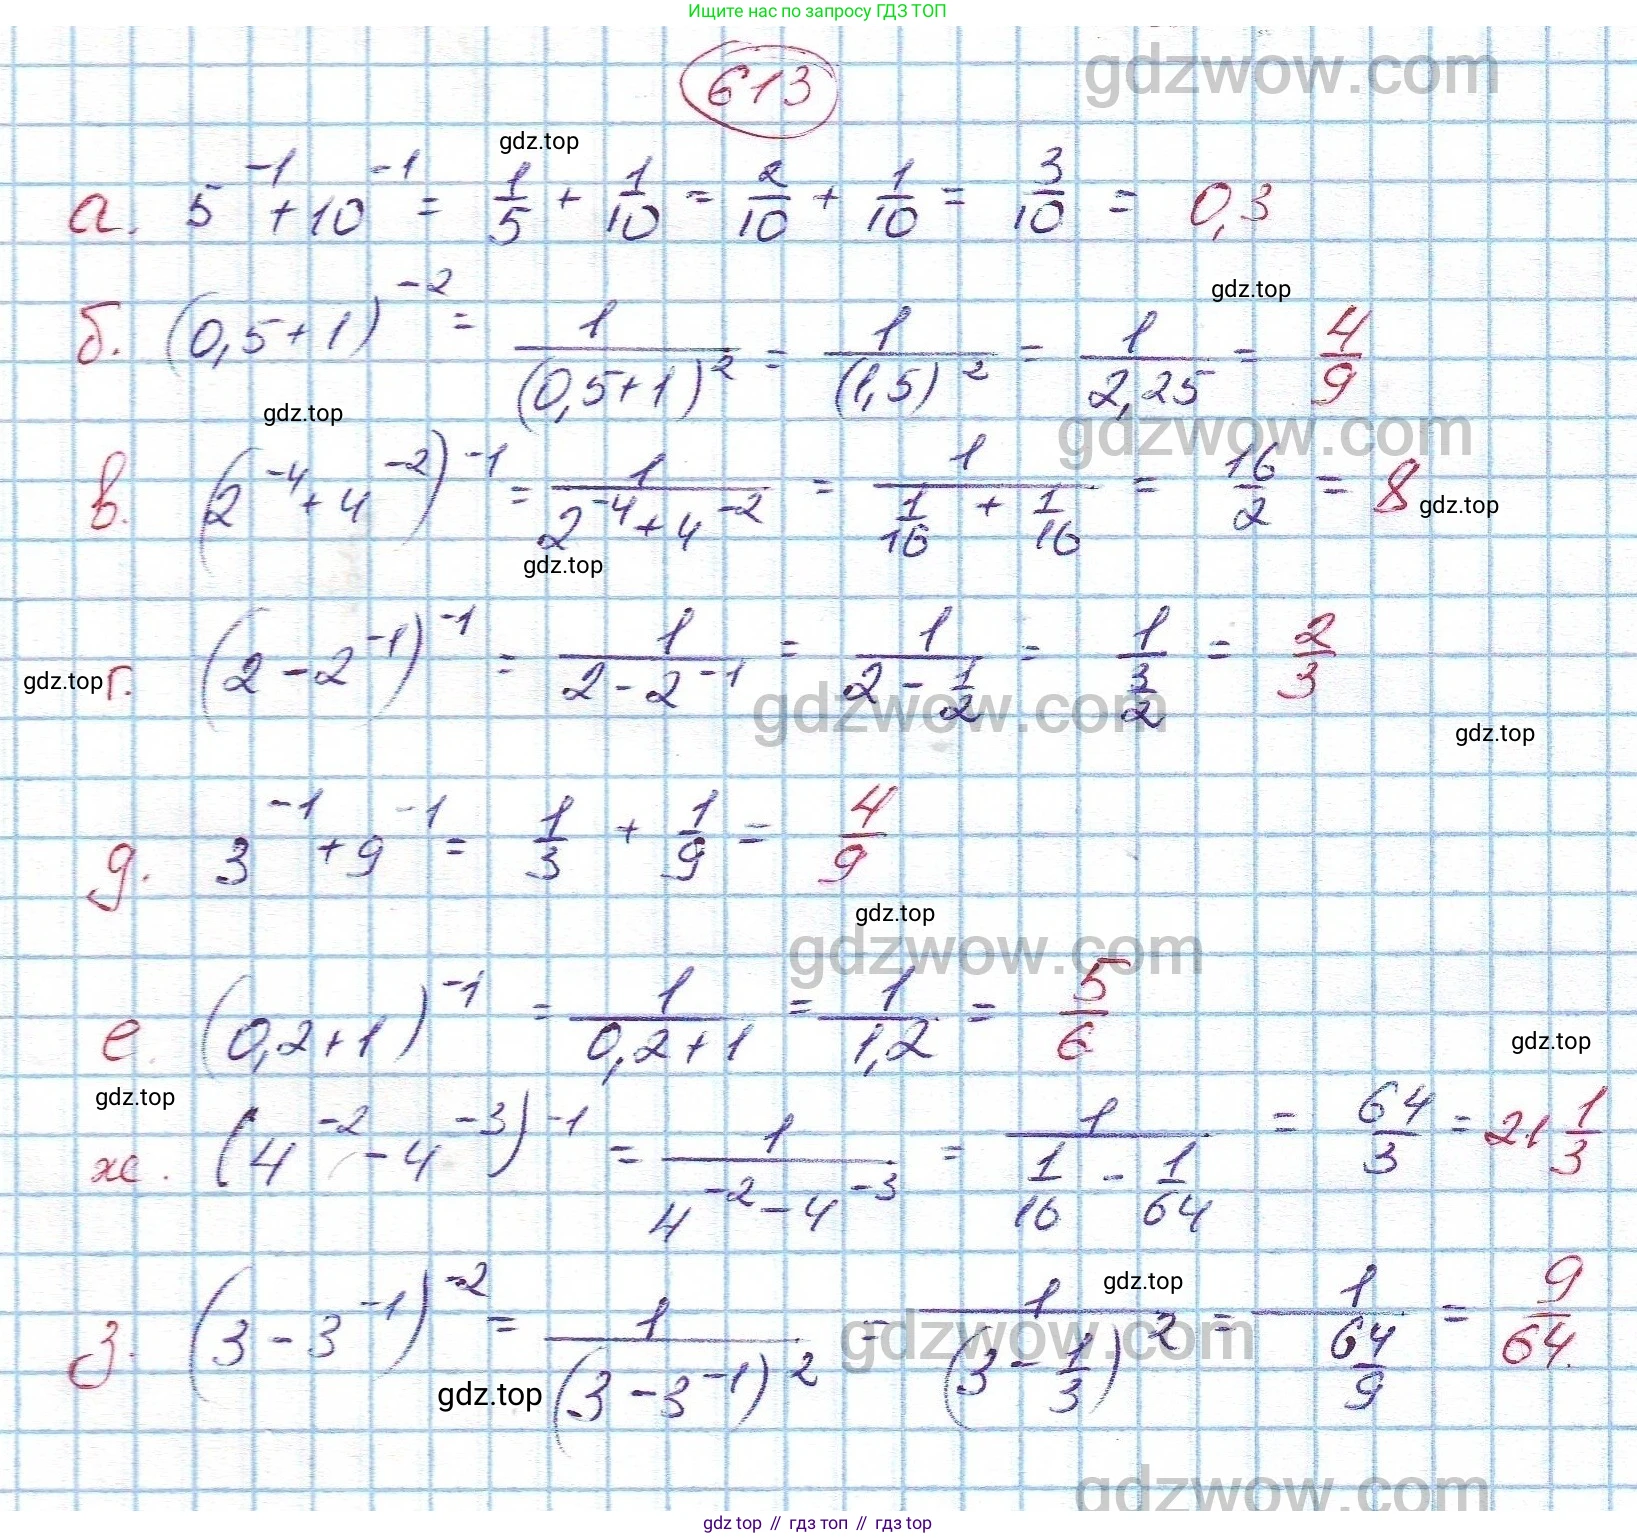 Ищите нас по запросу ГДЗ ТОП
gdzwow.com
613
gdz.top
а. 5^-1 + 10^-1 = 1/5 + 1/10 = 2/10 + 1/10 = 3/10 = 0,3
gdz.top
б. (0,5+1)^-2 = 1/(0,5+1)^2 = 1/(1,5)^2 = 1/2,25 = 4/9
gdz.top
gdzwow.com
в. (2^-4 + 4^-2)^-1 = 1/(2^-4 + 4^-2) = 1/(1/16 + 1/16) = 16/2 = 8
gdz.top
gdz.top
г. (2 - 2^-1)^-1 = 1/(2 - 2^-1) = 1/(2 - 1/2) = 1/(3/2) = 2/3
gdz.top
gdzwow.com
gdz.top
д. 3^-1 + 9^-1 = 1/3 + 1/9 = 4/9
gdz.top
gdzwow.com
е. (0,2+1)^-1 = 1/(0,2+1) = 1/1,2 = 5/6
gdz.top
gdz.top
ж. (4^-2 - 4^-3)^-1 = 1/(4^-2 - 4^-3) = 1/(1/16 - 1/64) = 64/3 = 21 1/3
gdz.top
з. (3 - 3^-1)^-2 = 1/(3 - 3^-1)^2 = 1/(3 - 1/3)^2 = 1/(64/9) = 9/64.
gdzwow.com
gdz.top
gdzwow.com
gdz top // гдз топ // гдз top